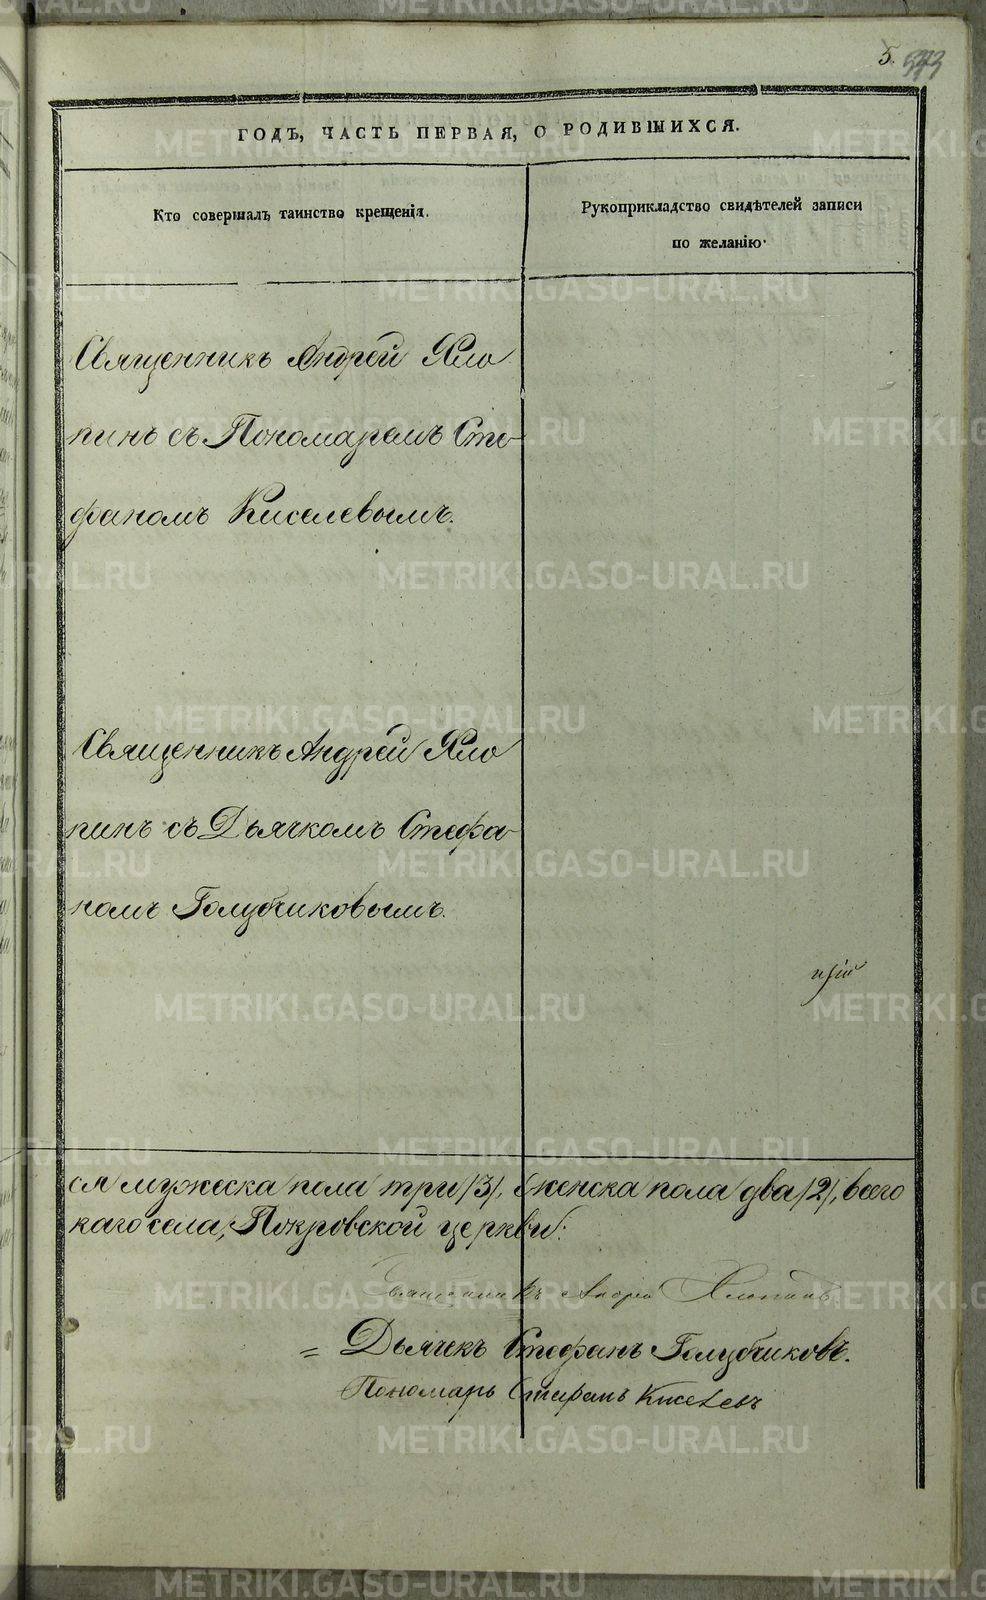 5.
ГОДЪ, ЧАСТЬ ПЕРВАЯ, О РОДИВШИХСЯ.
Кто совершалъ таинство крещенія.
Рукоприкладство свидѣтелей записи
по желанію.
Священникъ Андрей Хло
пинъ съ Пономаремъ Сте-
фаномъ Киселевымъ.
Священникъ Андрей Хло
пинъ съ Дьячкомъ Стефа-
номъ Голубчиковымъ.
ся мужеска пола три /3/, женска пола два /2/, всего
каго села, Покровской церкви:
Священникъ Андрей Хлопинъ.
= Дьячекъ Стефанъ Голубчиковъ.
Пономарь Стефанъ Киселевъ
METRIKI.GASO-URAL.RU